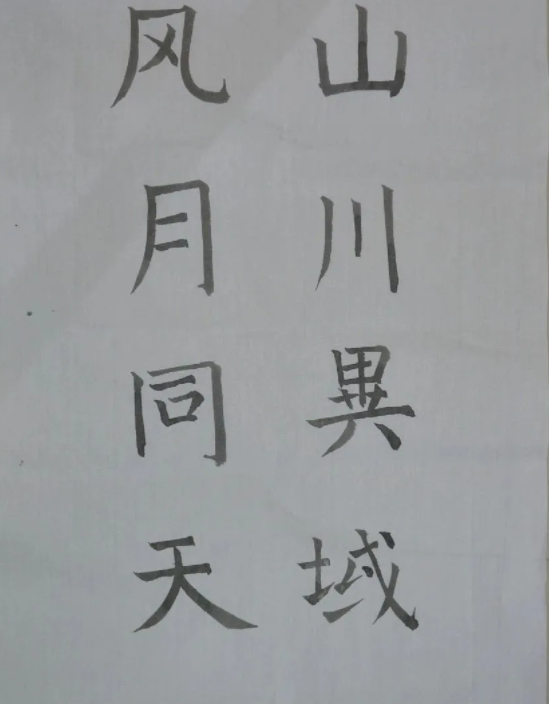 山川異域
风月同天